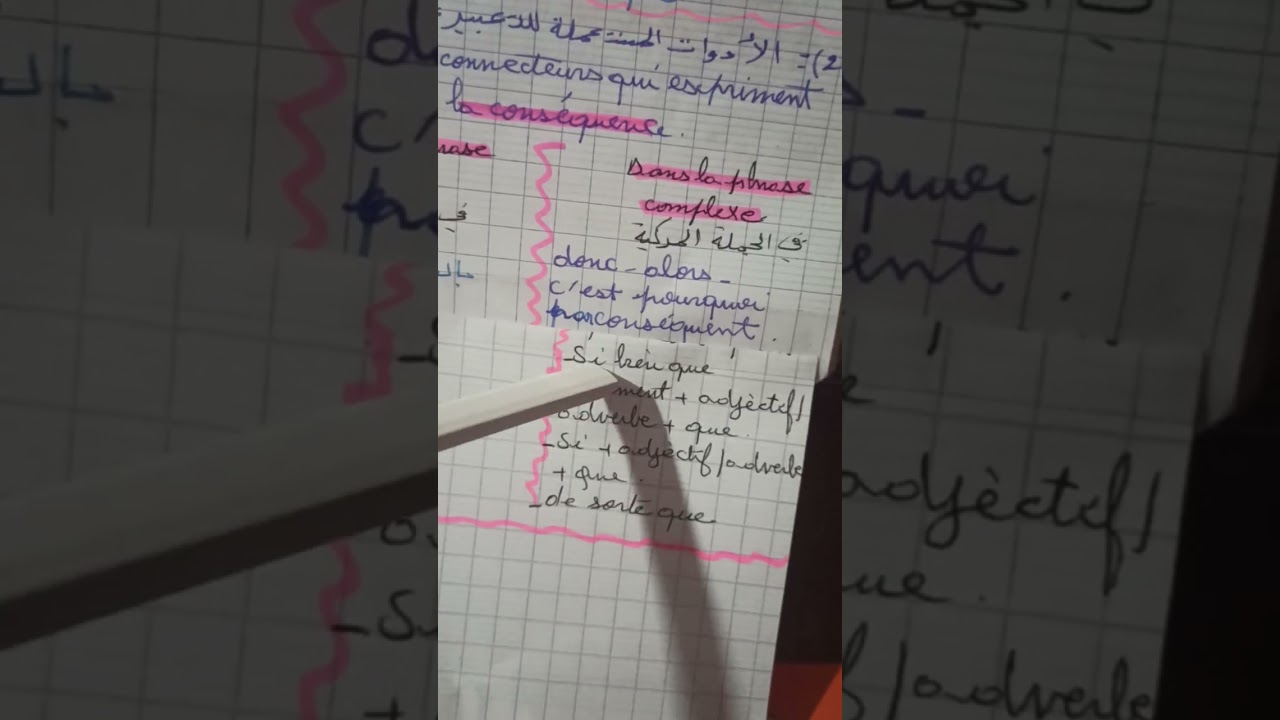 2)= الأدوات المستعملة للتعبير
connecteurs qui expriment
la conséquence.
rase
Dans la phrase
complexe
في الجملة المركبة
donc - alors -
c'est pourquoi
par conséquent.
- Si bien que
ment + adjèctif/
adverbe + que.
- Si + adjèctif/adverbe
+ que.
- de sorte que